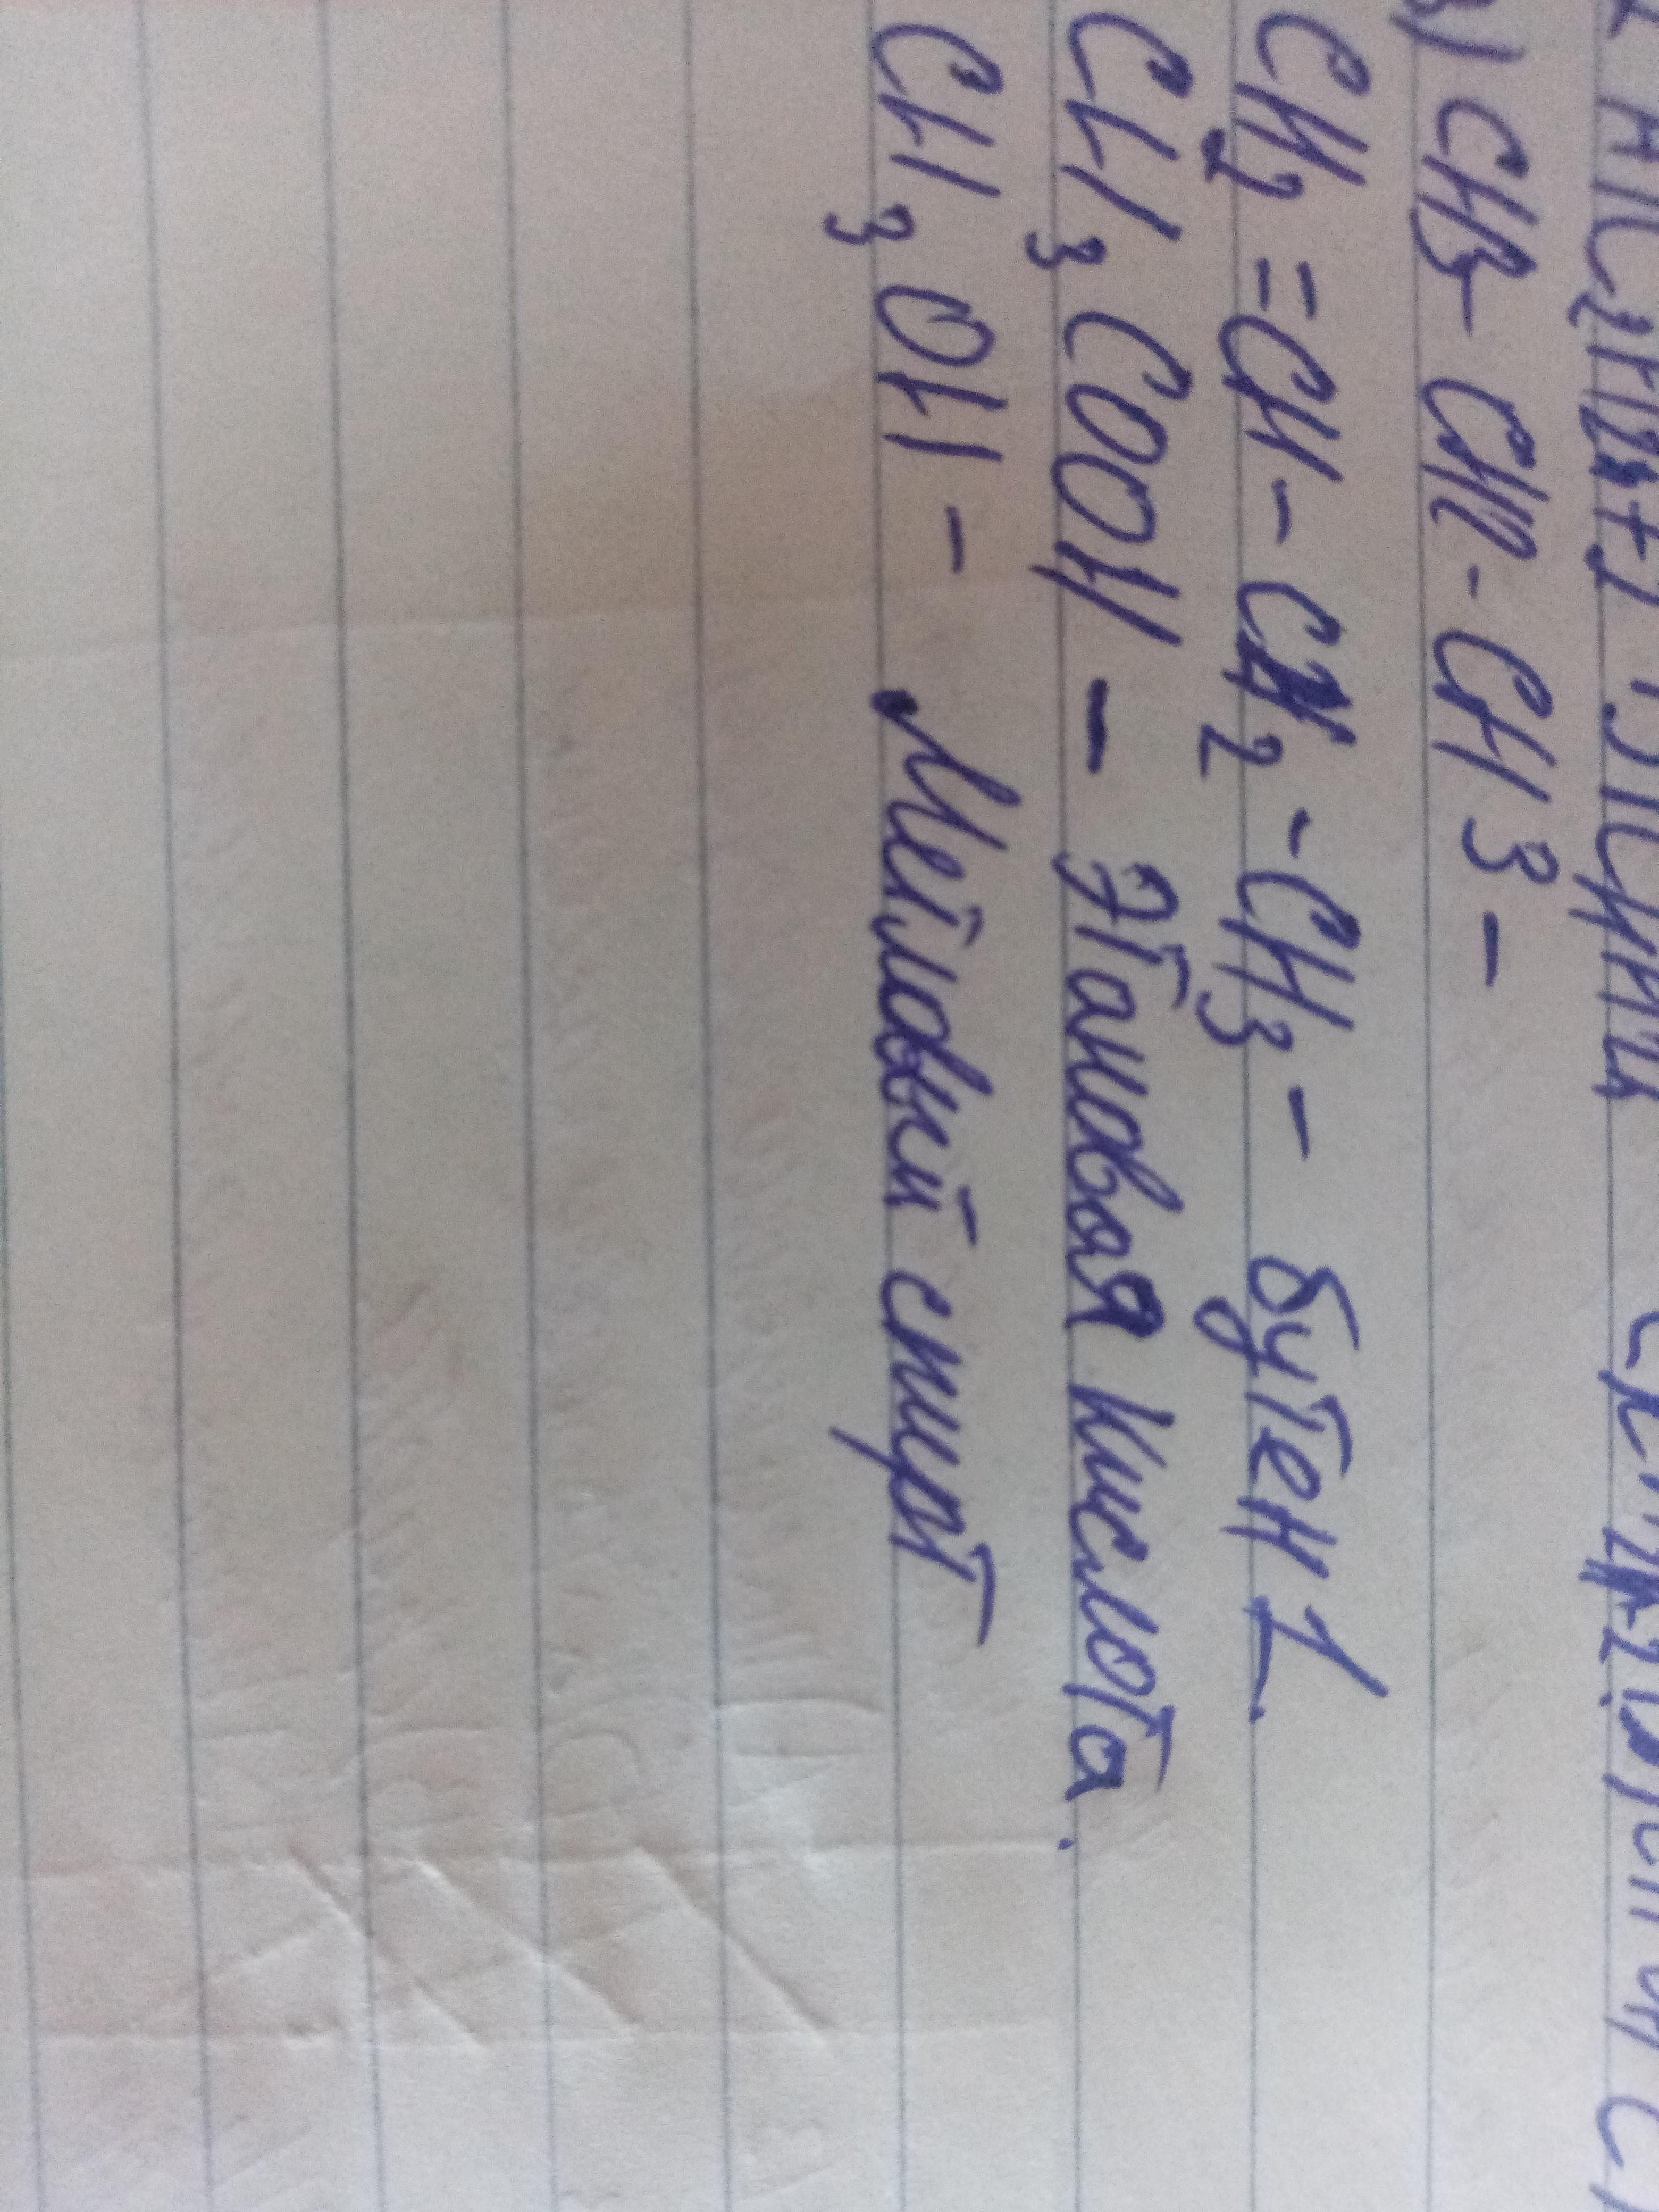 3) CH3 - CH2 - CH3 -
CH2 = CH - CH2 - CH3 - бутен 1.
CH3COOH - Этановая кислота.
CH3OH - Метиловый спирт